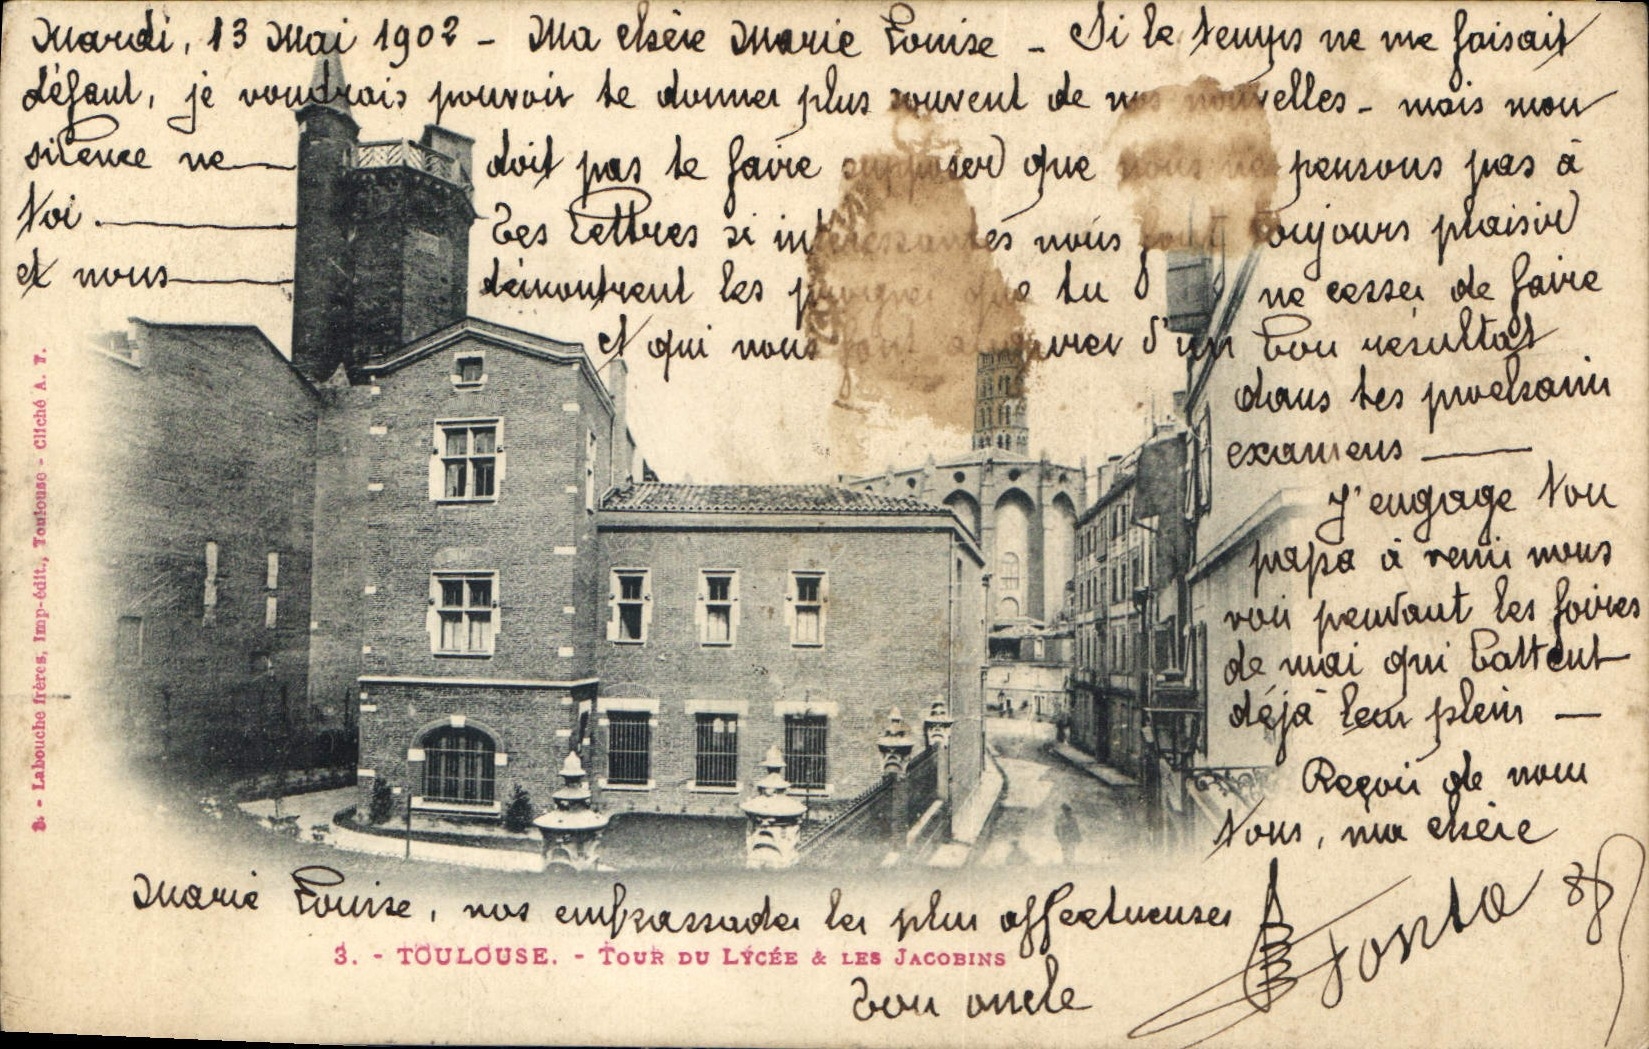 Mardi, 13 Mai 1902 - Ma chère Marie Louise - Si le temps ne me faisait
défaut, je voudrais pouvoir te donner plus souvent de nos nouvelles - mais mon
silence ne doit pas te faire supposer que nous ne pensons pas à
toi. Tes lettres si intéressantes nous font toujours plaisir
et nous démontrent les progrès que tu ne cesses de faire
et qui nous font augurer d'un bon résultat
dans tes prochains
examens
J'engage ton
papa à venir nous
voir pendant les foires
de mai qui battent
déjà leur plein -
Reçois de nous
tous, ma chère
Marie Louise, nos embrassades les plus affectueuses
3. - TOULOUSE. - TOUR DU LYCÉE & LES JACOBINS
Ton oncle
B. - Labouche frères, Imp-édit., Toulouse - Cliché A. T.